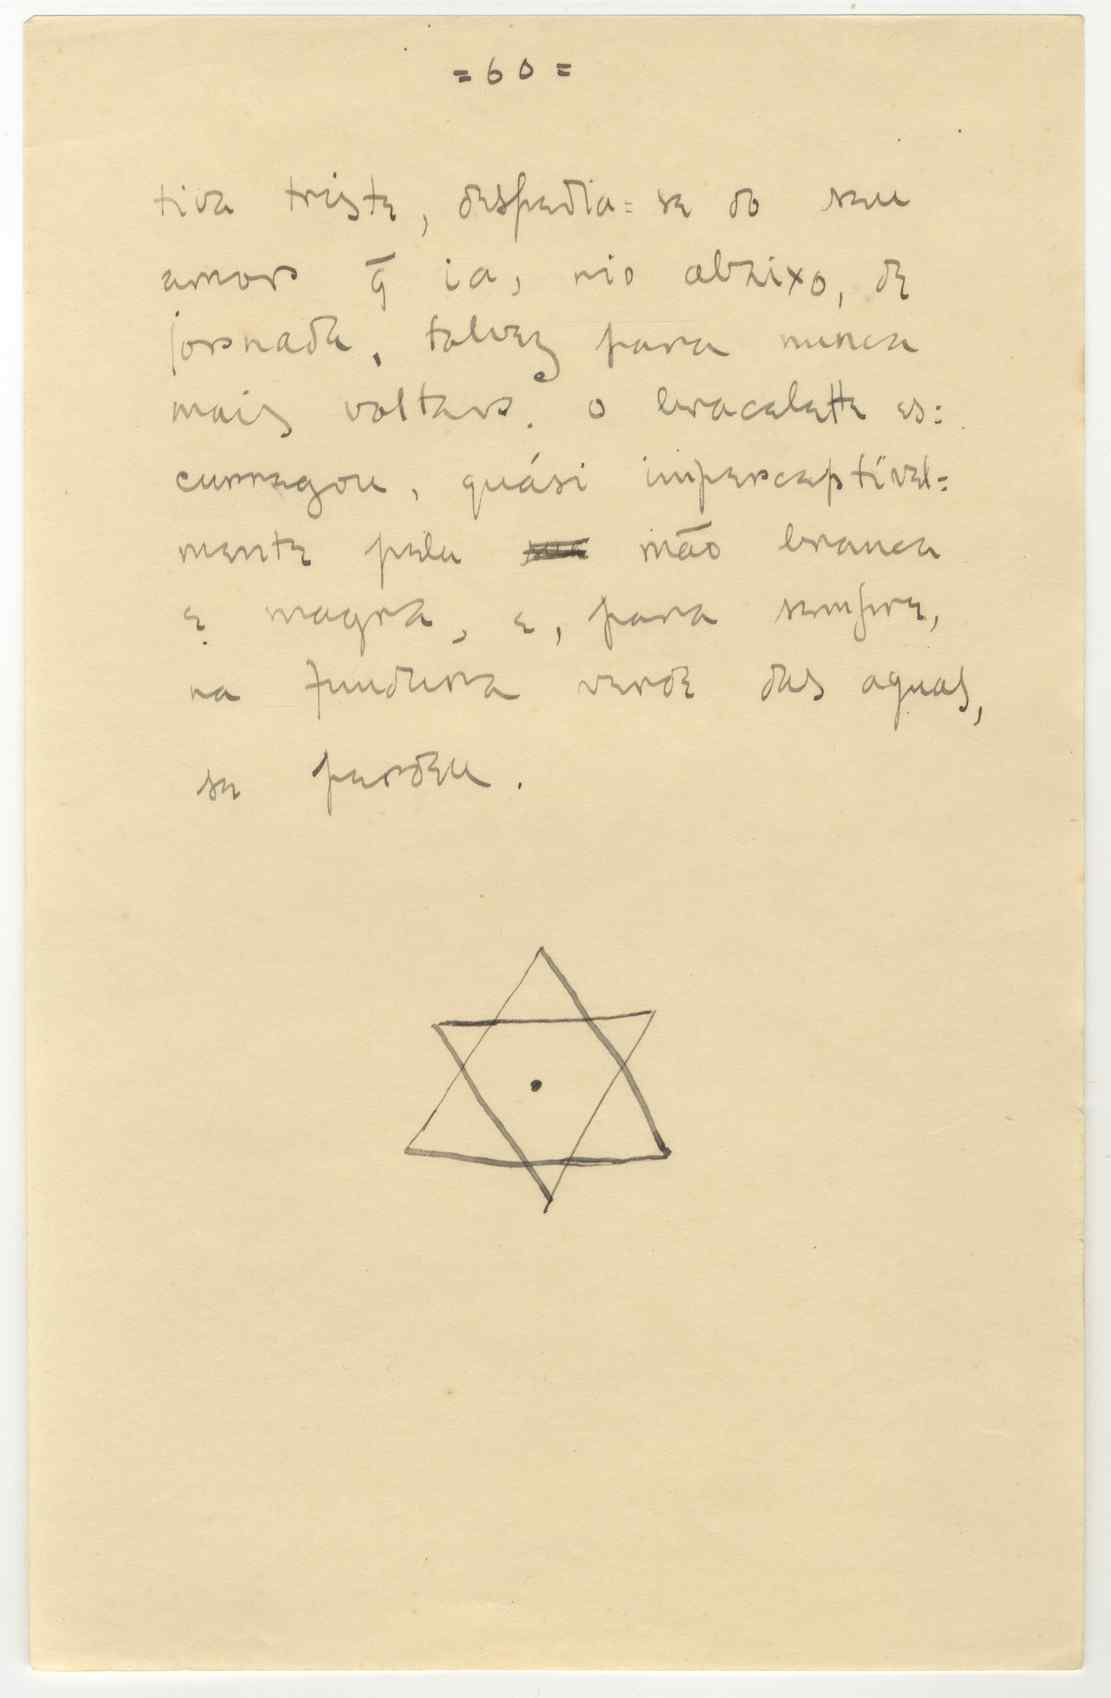 = 60 =
tiva triste, despedia=se do seu
amor q̄ ia, rio abaixo, de
jornada, talvez para nunca
mais voltar. O bracelette es=
curregou, quási imperceptível=
mente pela sua mão branca
e magra, e, para sempre,
na fundura verde das aguas,
se perdeu.